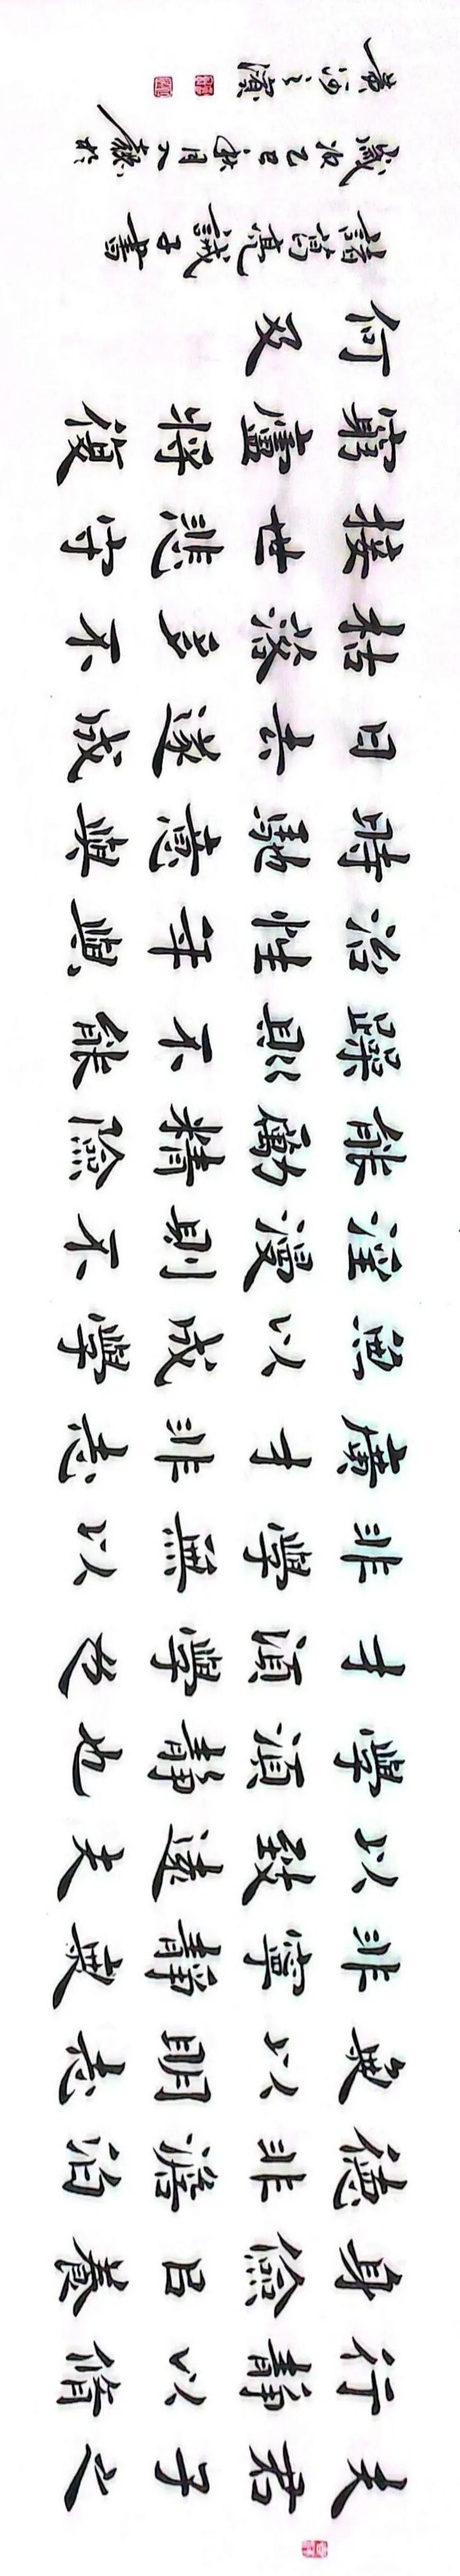 夫君子之
行靜以修
身儉㠯養
德非澹泊
無以明志
非寧靜無
以致遠夫
學須靜也
才須學也
非學無以
廣才非志
無以成學
淫漫則不
能勵精險
躁則不能
治性年與
時馳意與
日去遂成
枯落多不
接世悲守
窮廬將復
何及
諸葛亮誡子書
歲次乙巳秋月於
黃河之濱